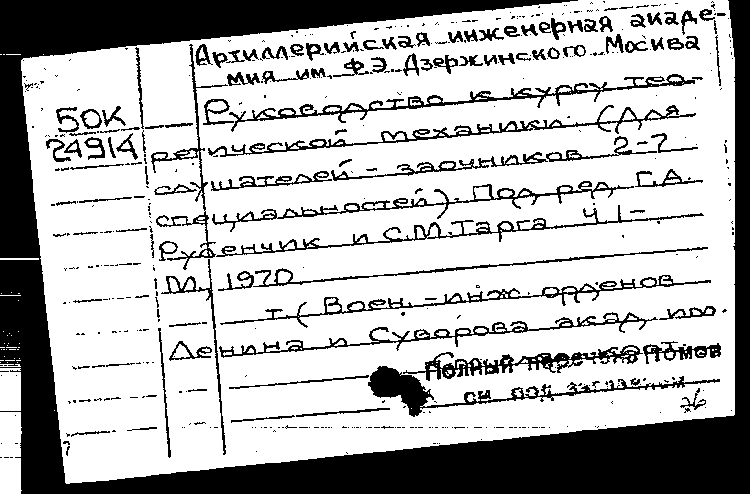 Артиллерийская инженерная акаде-
мия им. Ф.Э. Дзержинского. Москва
50К
24914
Руководство к курсу тео-
ретической механики. (Для
слушателей - заочников 2-7
специальностей). Под ред. Г.А.
Рубенчик и С.М. Тарга Ч 1-
М., 1970
т. (Воен. -инж. орденов
Ленина и Суворова акад. им.
Полный перечень томов
см под заглавием